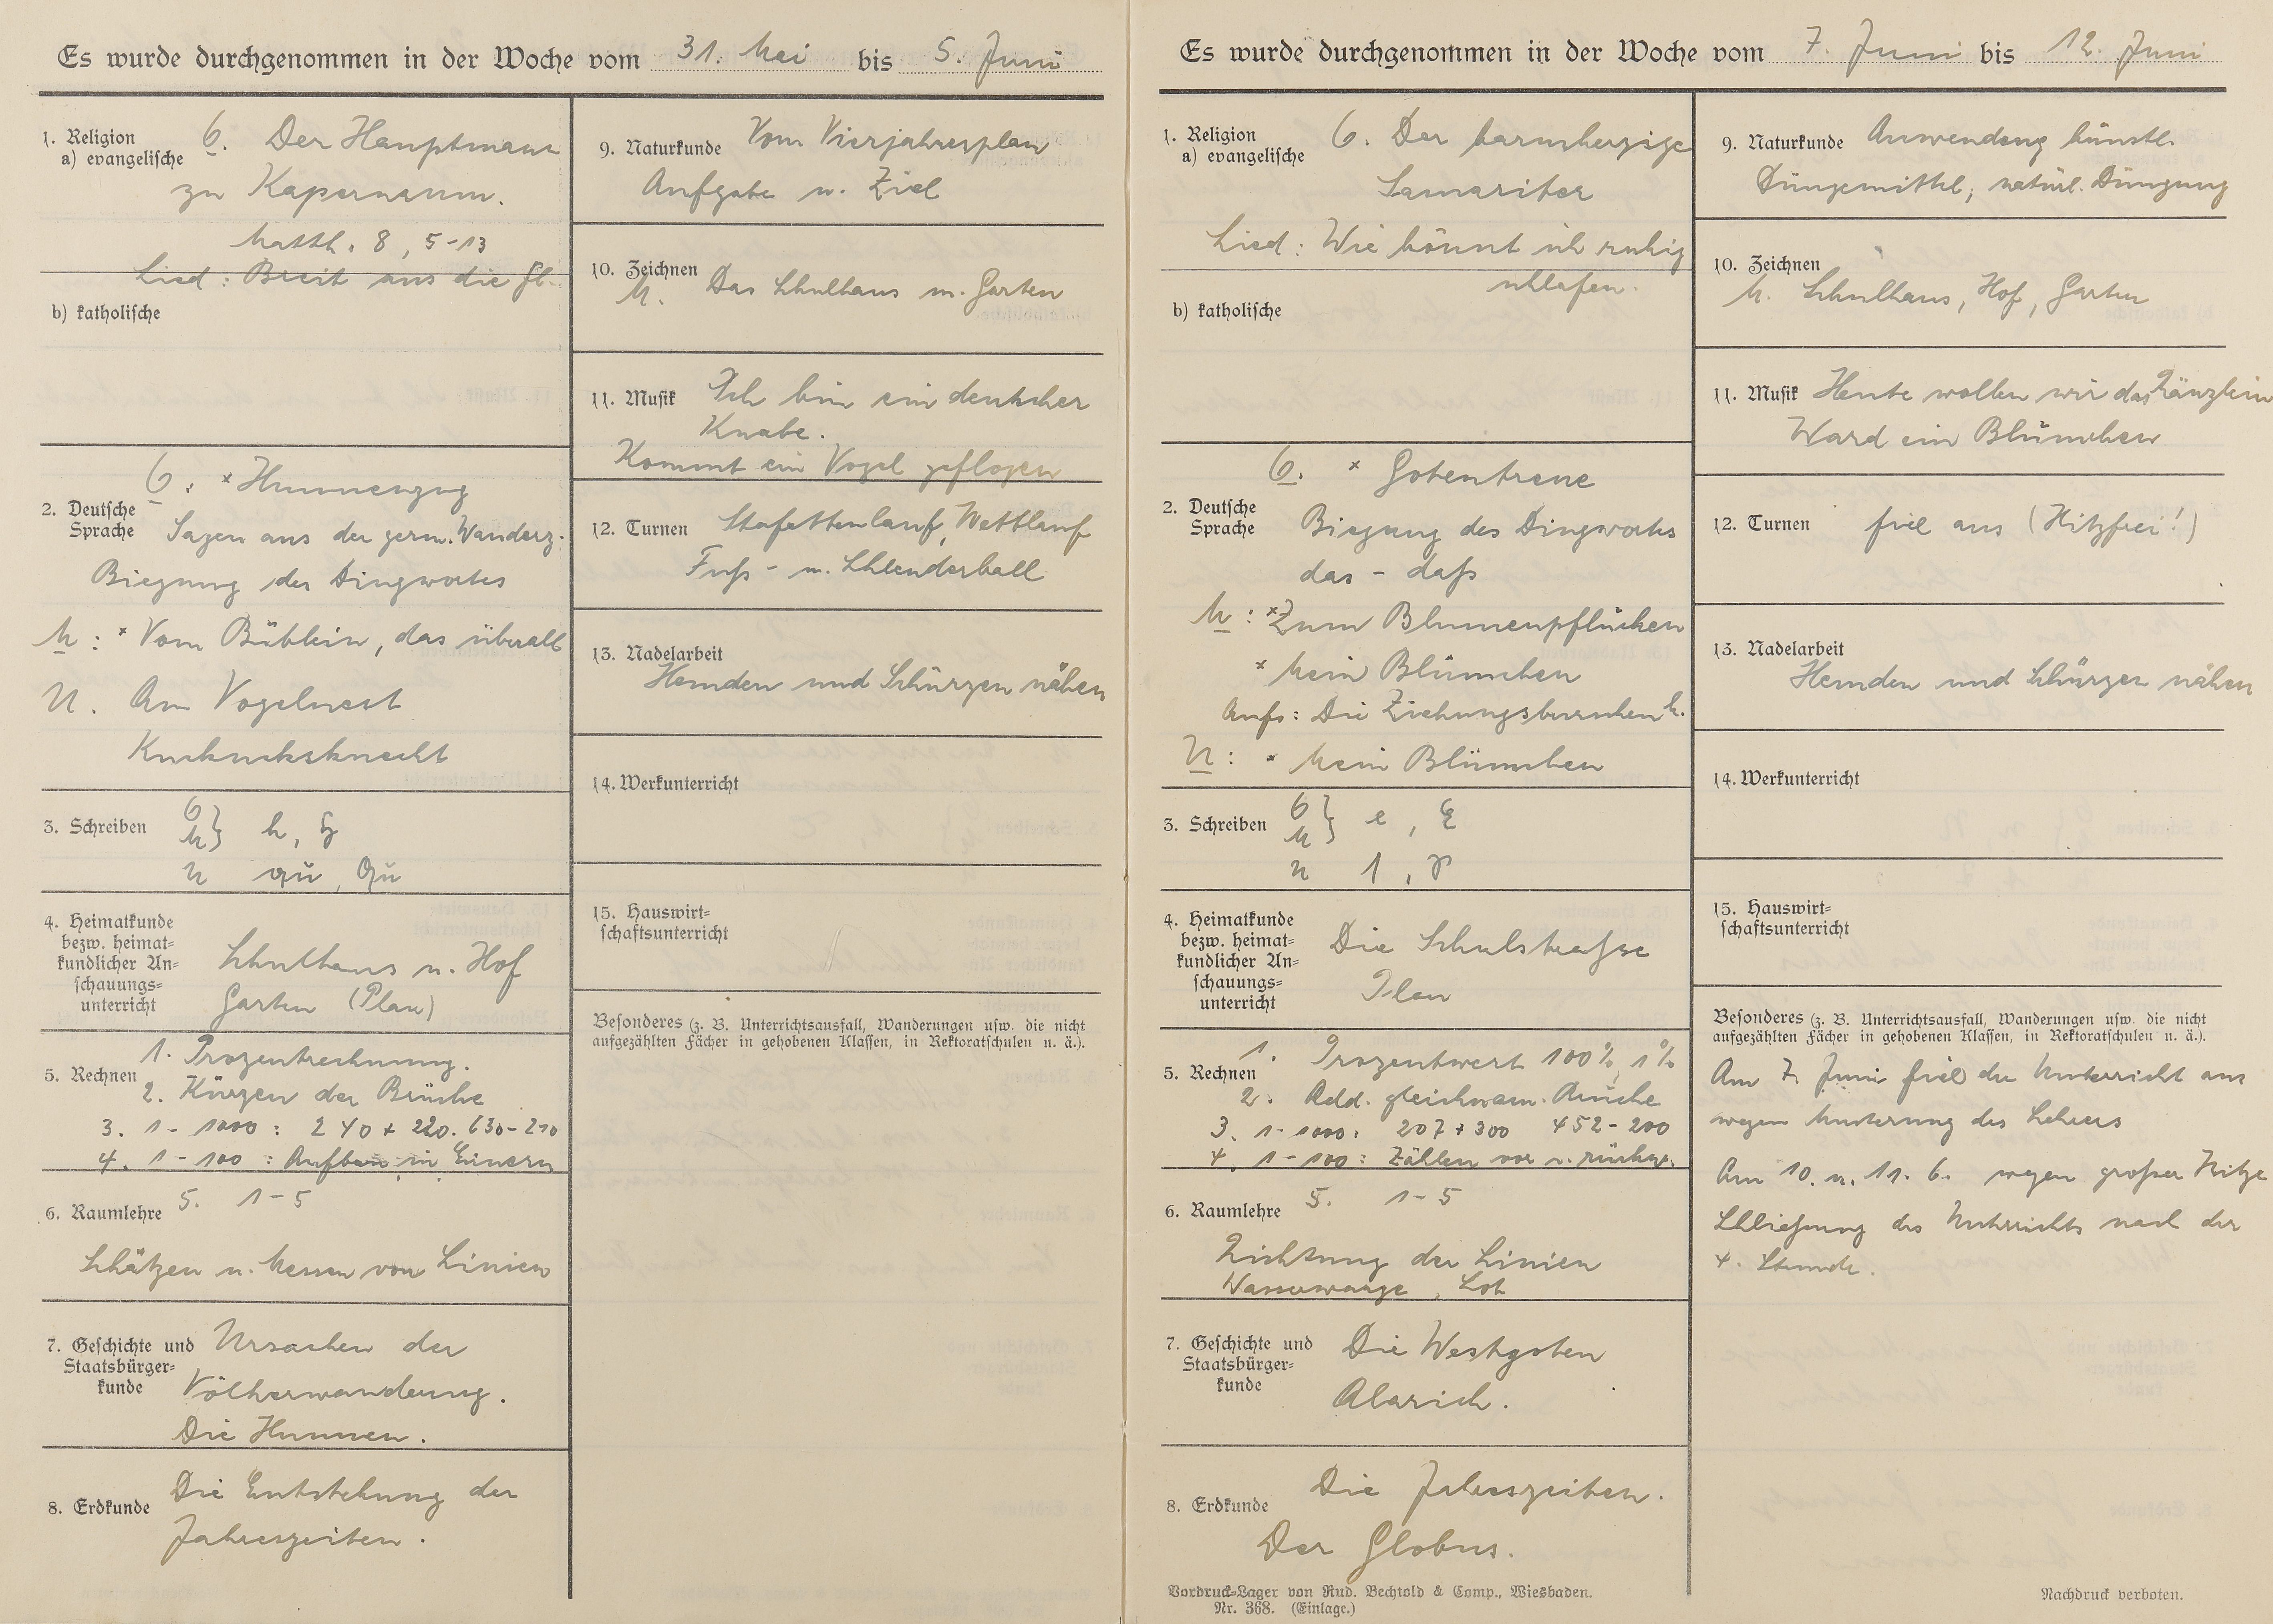 Es wurde durchgenommen in der Woche vom 31. Mai bis 5. Juni
1. Religion
a) evangelische
O. Der Hauptmann
zu Kapernaum.
Matth. 8, 5-13
Lied: Breit aus die Fl.
b) katholische
2. Deutsche
Sprache
O. × Hunnenzug
Sagen aus der germ. Wanderz.
Biegung des Dingwortes
M: × Vom Büblein, das überall
U. Am Vogelnest
Kuckucksknecht
3. Schreiben
O
M } h, H
U qu, Qu
4. Heimatkunde
bezw. heimat=
kundlicher An=
schauungs=
unterricht
Schulhaus u. Hof
Garten (Plan)
5. Rechnen
1. Prozentrechnung.
2. Kürzen der Brüche
3. 1-1000: 240+220. 630-210
4. 1-100: Aufbau in Einern
5. 1-5
6. Raumlehre
Schätzen u. Messen von Linien
7. Geschichte und
Staatsbürger=
kunde
Ursachen der
Völkerwanderung.
Die Hunnen.
8. Erdkunde
Die Entstehung der
Jahreszeiten.
9. Naturkunde Vom Vierjahresplan
Aufgabe u. Ziel
10. Zeichnen
M. Das Schulhaus m. Garten
11. Musik Ich bin ein deutscher
Knabe.
Kommt ein Vogel geflogen
12. Turnen Stafettenlauf, Wettlauf
Fuß- u. Schlenderball
13. Nadelarbeit
Hemden und Schürzen nähen
14. Werkunterricht
15. Hauswirt=
schaftsunterricht
Besonderes (z. B. Unterrichtsausfall, Wanderungen usw. die nicht
aufgezählten Fächer in gehobenen Klassen, in Rektoratschulen u. ä.).
Es wurde durchgenommen in der Woche vom 7. Juni bis 12. Juni
1. Religion
a) evangelische
O. Der barmherzige
Samariter
Lied: Wie könnt ich ruhig
schlafen.
b) katholische
2. Deutsche
Sprache
O. × Gotentreue
Biegung des Dingwortes
das - daß
M: × Zum Blumenpflücken
× Mein Blümchen
Aufs: Die Ziehungsburschen k.
U: × Mein Blümchen
3. Schreiben
O
M } e, E
U
4. Heimatkunde
bezw. heimat=
kundlicher An=
schauungs=
unterricht
Die Schulstraße
Plan
5. Rechnen
1. Prozentwert 100%, 1%
2. Add. gleichnam. Brüche
3. 1-1000: 207+300 452-200
4. 1-100: Zählen vor u. rückw.
5. 1-5
6. Raumlehre
Richtung der Linien
Wasserwaage, Lot
7. Geschichte und
Staatsbürger=
kunde
Die Westgoten
Alarich.
8. Erdkunde
Die Jahreszeiten.
Der Globus.
9. Naturkunde Anwendung künstl.
Düngemittel, natürl. Düngung
10. Zeichnen
M. Schulhaus, Hof, Garten
11. Musik Heute wollen wir das Ränzlein
Ward ein Blümchen
12. Turnen fiel aus (Hitzfrei!)
13. Nadelarbeit
Hemden und Schürzen nähen
14. Werkunterricht
15. Hauswirt=
schaftsunterricht
Besonderes (z. B. Unterrichtsausfall, Wanderungen usw. die nicht
aufgezählten Fächer in gehobenen Klassen, in Rektoratschulen u. ä.).
Am 7. Juni fiel der Unterricht aus
wegen Musterung des Lehrers
Am 10. u. 11. 6. wegen großer Hitze
Schließung des Unterrichts nach der
4. Stunde.
Vordruck=Lager von Rud. Bechtold & Comp., Wiesbaden.
Nr. 368. (Einlage.)
Nachdruck verboten.